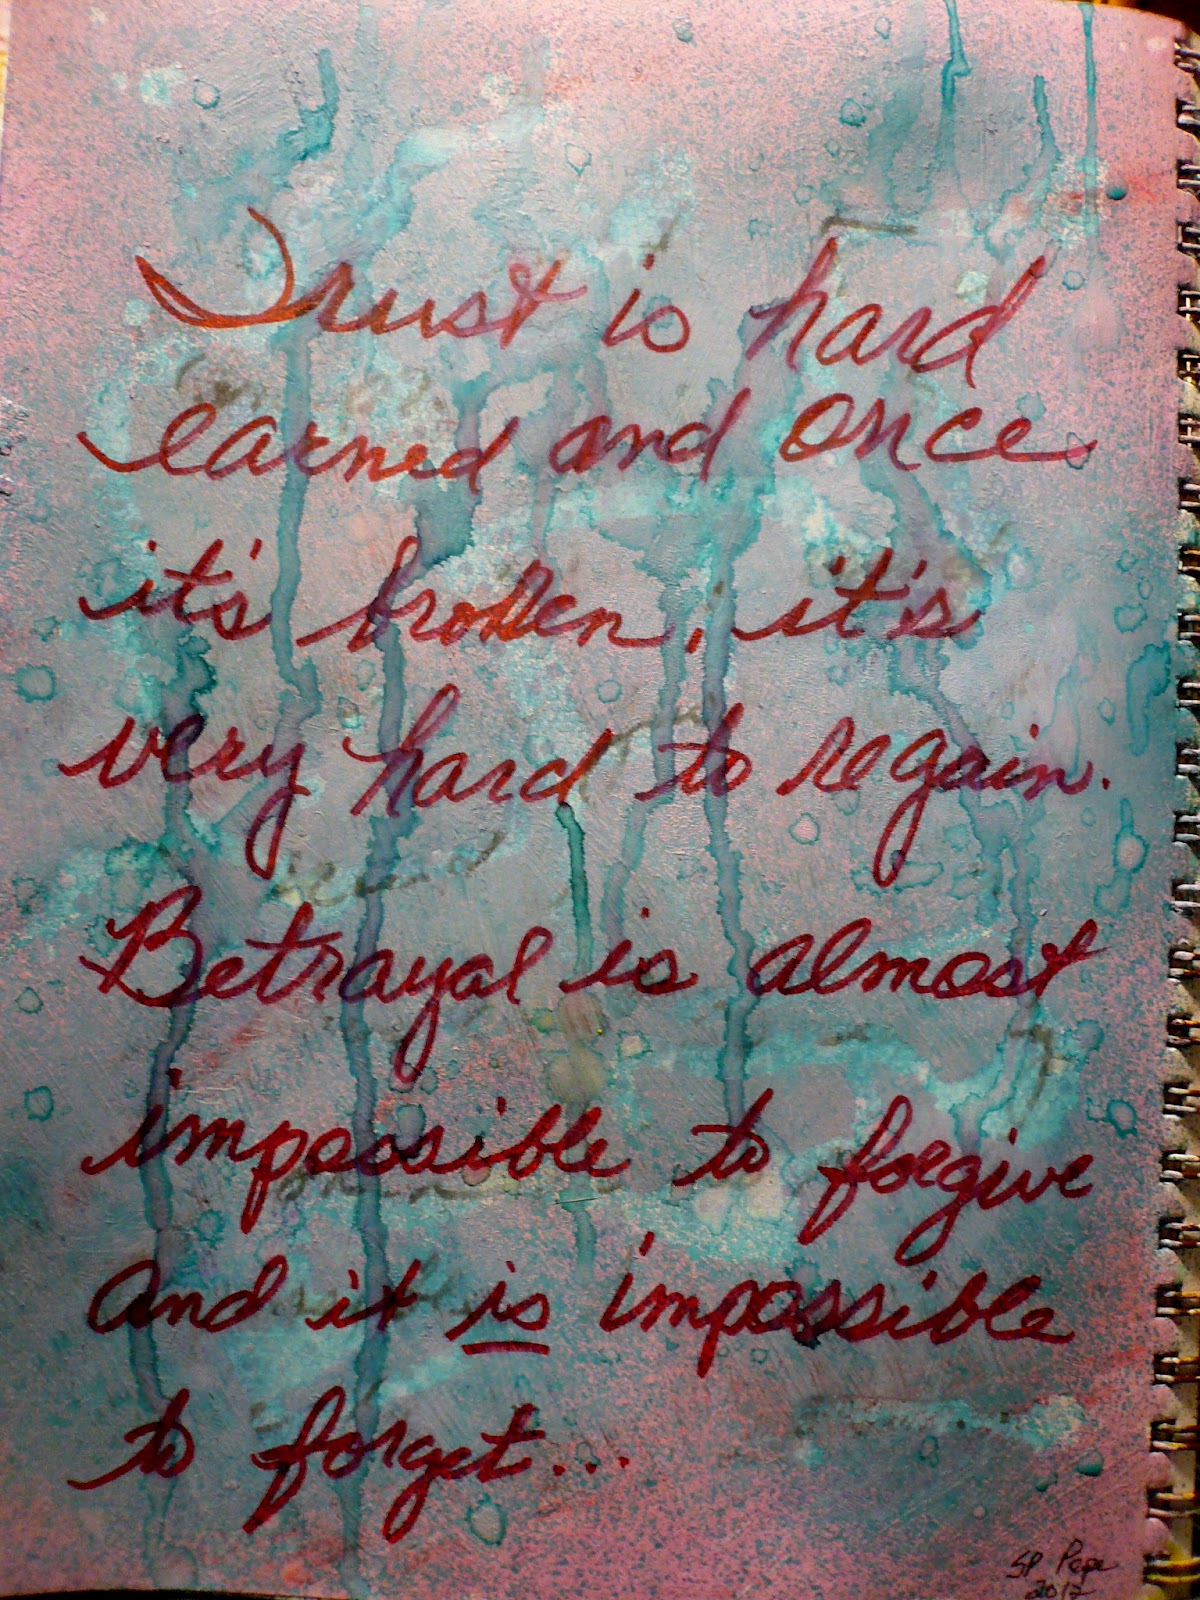 Trust is hard
earned and once
it's broken, it's
very hard to regain.
Betrayal is almost
impossible to forgive
and it is impossible
to forget...
SP Page
2012